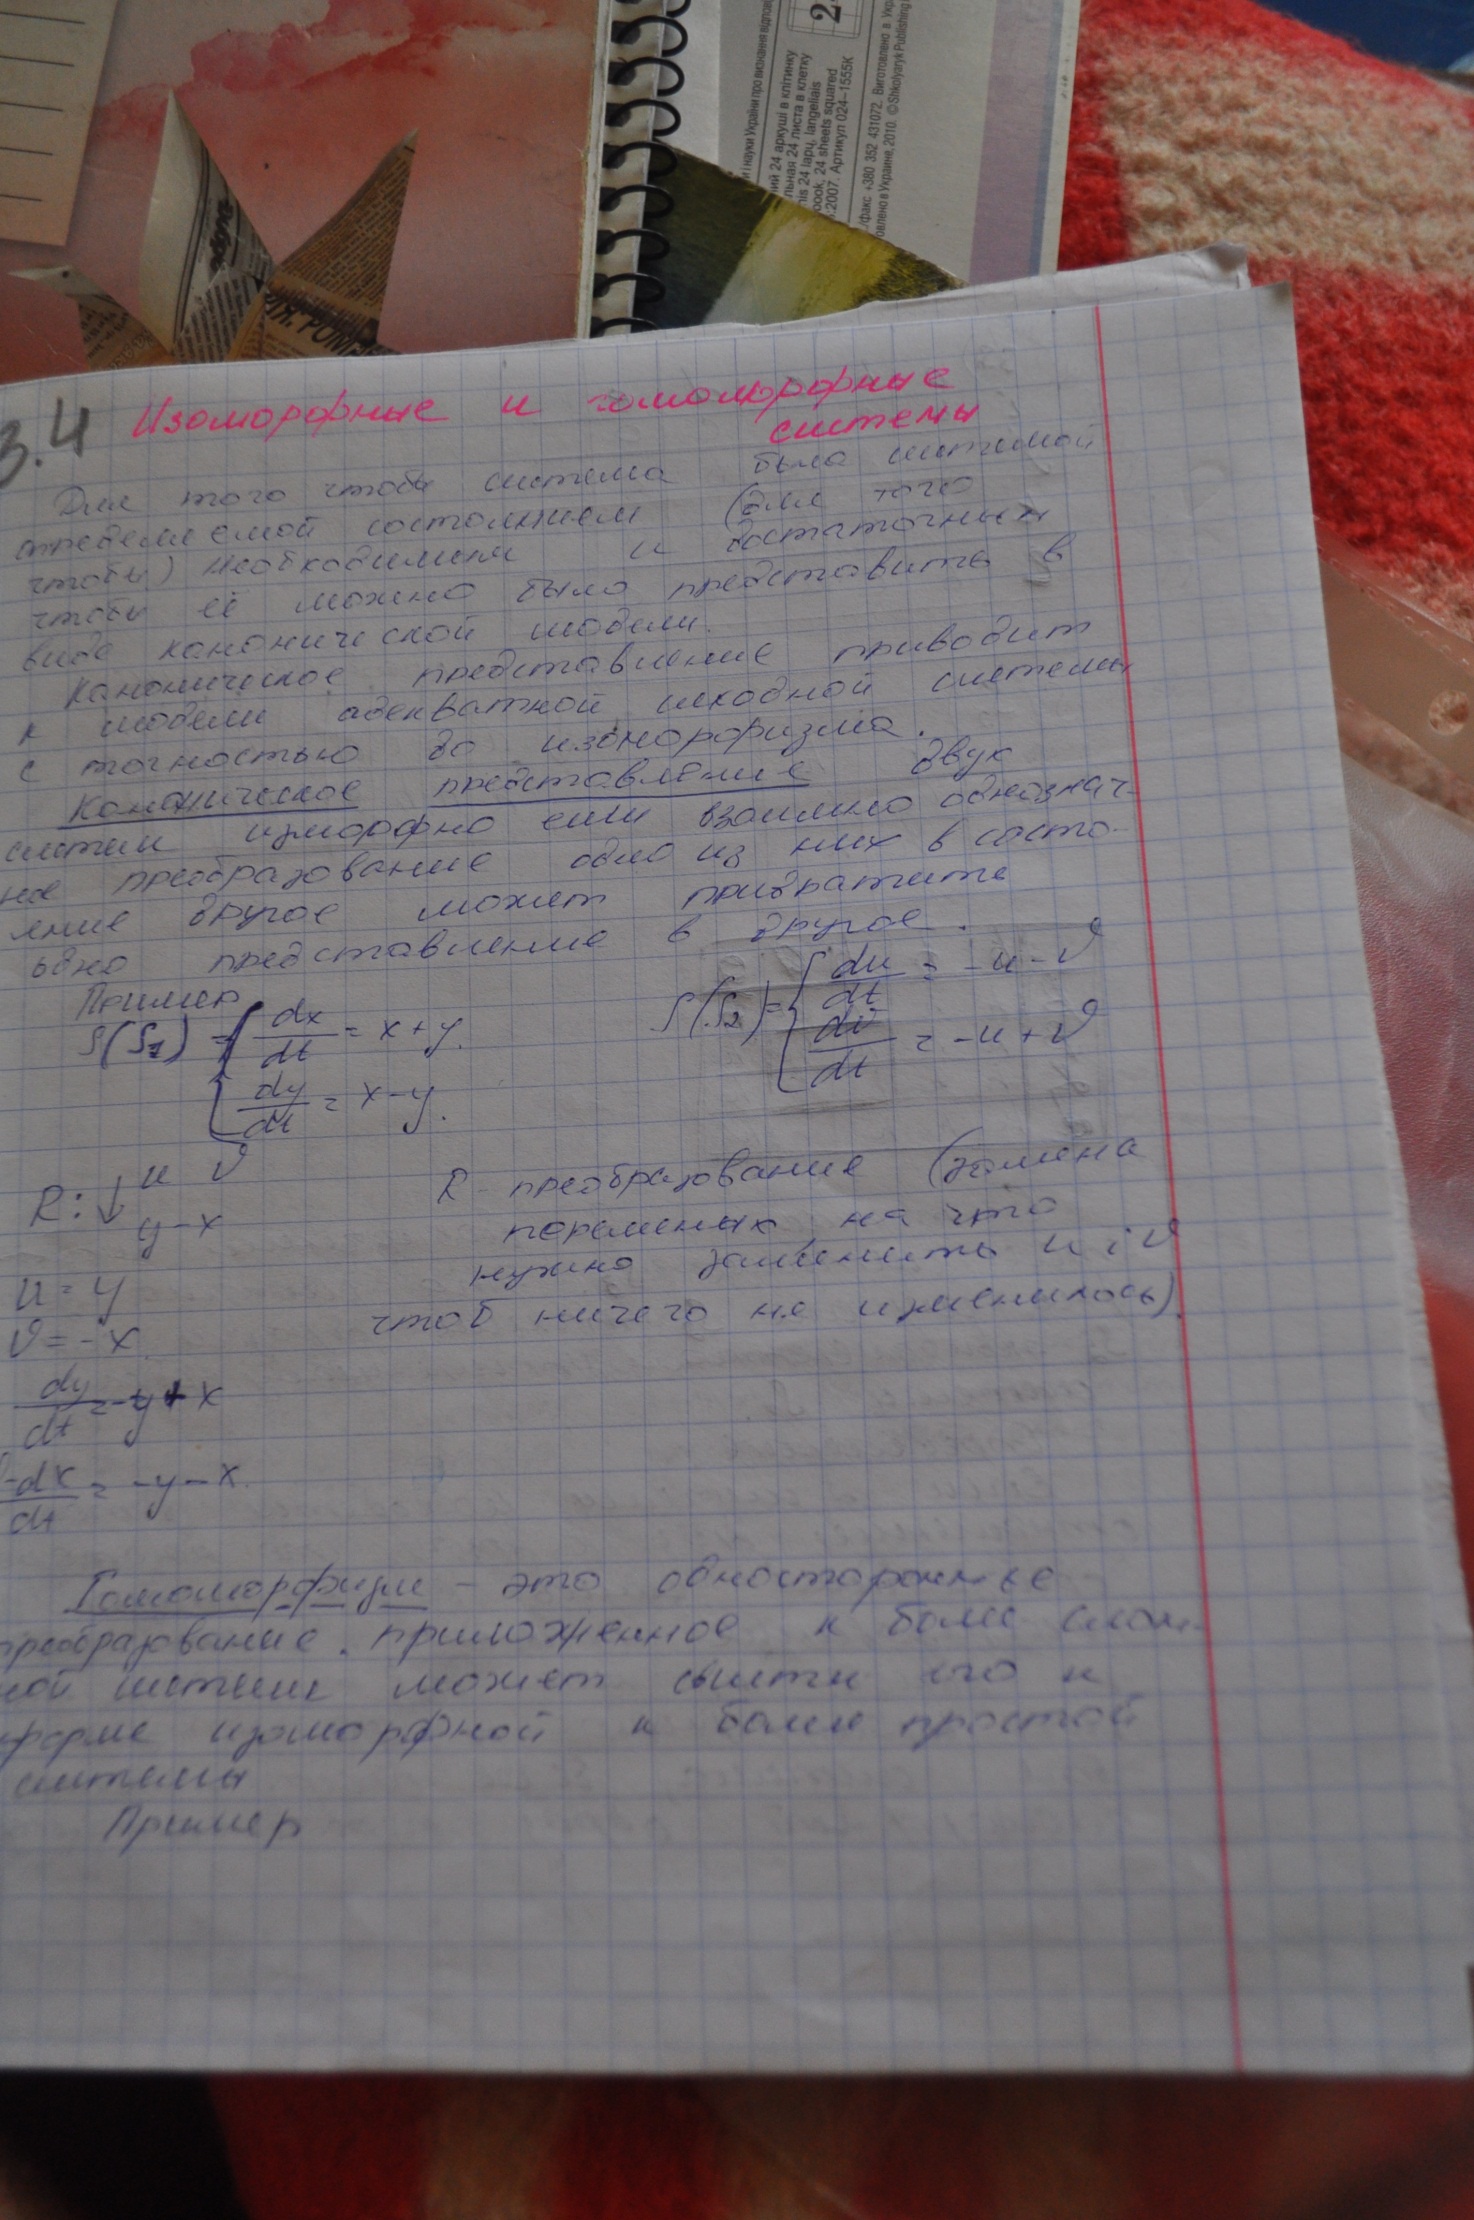 2
и науки України про визнання відпов
ний 24 аркуші в клітинку
льная 24 листа в клетку
his 24 lapų, langeliais
book, 24 sheets squared
:2007. Артикул 024–1555К
/факс +380 352 431072. Виготовлено в Укр
овлено в Украине, 2010. ©Shkolyaryk Publishing
3.4 Изоморфные и гомоморфные
системы
Для того чтобы система была системой
определяемой состоянием (для того
чтобы) необходимым и достаточным
чтобы её можно было представить в
виде канонической модели.
Каноническое представление приводит
к модели адекватной исходной системы
с точностью до изоморфизма.
Каноническое представление двух
систем изморфно если взаимно однознач-
ное преобразование одно из них в состо-
яние другое может привратить
одно представление в другое.
Пример
S(S1) = { dx/dt = x+y.
dy/dt = x-y.
S(S2) = { du/dt = -u-v
dv/dt = -u+v
R: ↓ u v
y -x
R - преобразование (замена
переменых, на что
нужно заменить u i v
чтоб ничего не изменилось).
u = y
v = -x
dy/dt = -y+x
-dx/dt = -y-x
Гомоморфизм - это односторонные
преобразование. приложенное к более слож-
ной системе может свести его к
форме изоморфной к более простой
системы
Пример